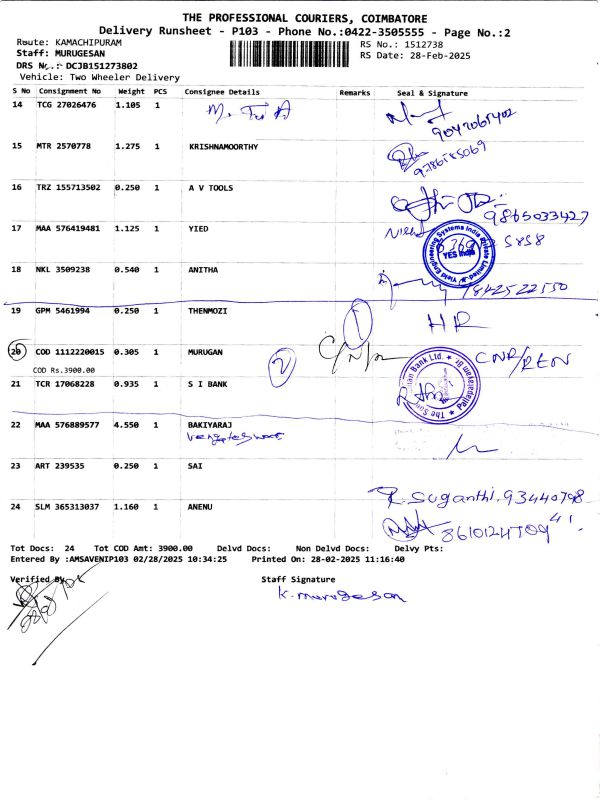 THE PROFESSIONAL COURIERS, COIMBATORE
Delivery Runsheet - P103 - Phone No.:0422-3505555 - Page No.:2
Route: KAMACHIPURAM RS No.: 1512738
Staff: MURUGESAN RS Date: 28-Feb-2025
DRS No.: DCJB151273802
Vehicle: Two Wheeler Delivery
S No Consignment No Weight PCS Consignee Details Remarks Seal & Signature
14 TCG 27026476 1.105 1
15 MTR 2570778 1.275 1 KRISHNAMOORTHY
16 TRZ 155713502 0.250 1 A V TOOLS
9865033427
17 MAA 576419481 1.125 1 YIED
5858
YES India
18 NKL 3509238 0.540 1 ANITHA
9842522550
19 GPM 5461994 0.250 1 THENMOZI
1 HR
20 COD 1112220015 0.305 1 MURUGAN
COD Rs.3900.00
2
21 TCR 17068228 0.935 1 S I BANK
22 MAA 576889577 4.550 1 BAKIYARAJ
23 ART 239535 0.250 1 SAI
24 SLM 365313037 1.160 1 ANENU
R. Suganthi. 93440798
41
Tot Docs: 24 Tot COD Amt: 3900.00 Delvd Docs: Non Delvd Docs: Delvy Pts:
Entered By :AMSAVENIP103 02/28/2025 10:34:25 Printed On: 28-02-2025 11:16:40
Verified By Staff Signature
K. Murugesan